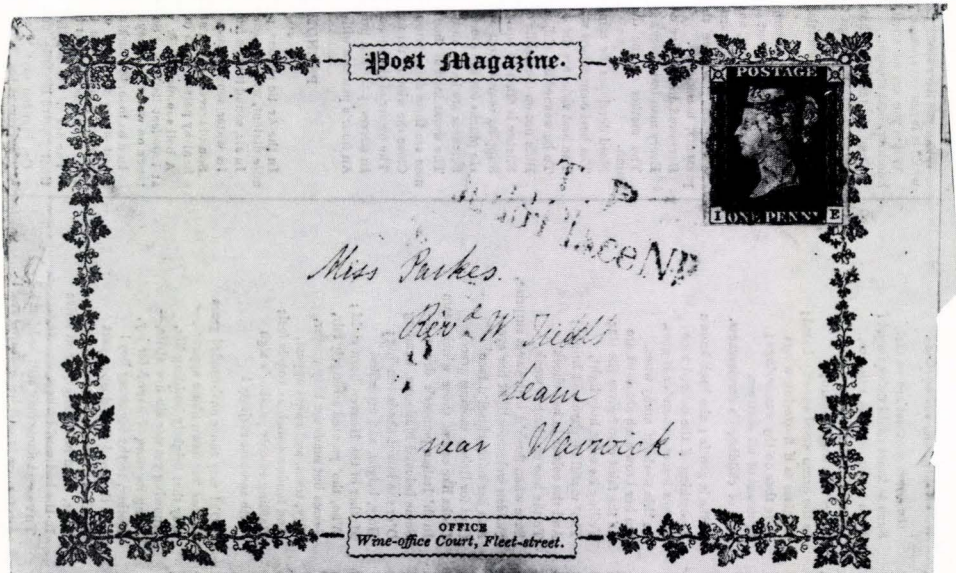 Post Magazine.
POSTAGE
I ONE PENNY E
T. P
Place NP
Miss Parkes.
Revd. W
Leam
near Warwick.
OFFICE
Wine-office Court, Fleet-street.